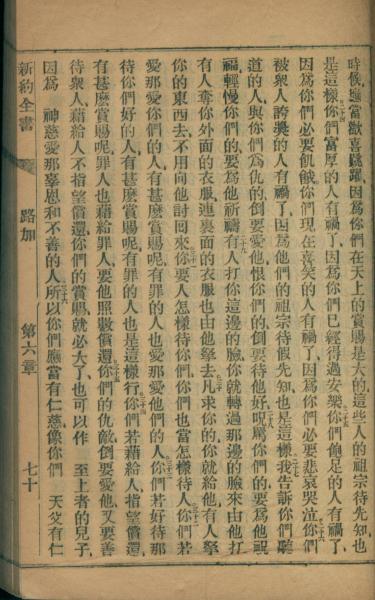 時候應當歡喜踴躍因爲你們在天上的賞賜是大的這些人的祖宗待先知也
是這樣你們富厚的人有禍了因爲你們已經得過安樂你們飽足的人有禍了
因爲你們必要飢餓你們現在喜笑的人有禍了因爲你們必要悲哀哭泣你們
被衆人誇獎的人有禍了因爲他們的祖宗待假先知也是這樣我告訴你們聽
道的人與你們爲仇的倒要愛他恨你們的倒要待他好咒罵你們的要爲他祝
福輕慢你們的要爲他祈禱有人打你這邊的臉你就轉過那邊的臉來由他打
有人奪你外面的衣服連裏面的衣服也由他拏去凡求你的你就給他有人拏
你的東西去不用向他討回來你要人怎樣待你們你們也當怎樣待人你們若
愛那愛你們的人有甚麽賞賜呢有罪的人也愛那愛他們的人你們若好待那
待你們好的人有甚麽賞賜呢有罪的人也是這樣行你們若藉給人指望償還
有甚麽賞賜呢罪人也藉給罪人要他照數償還你們的仇敵倒要愛他又要善
待衆人藉給人不指望償還你們的賞賜就必大了也可以作 至上者的兒子
因爲 神慈愛那辜恩和不善的人所以你們應當有仁慈像你們 天父有仁
新約全書 路加 第六章 七十